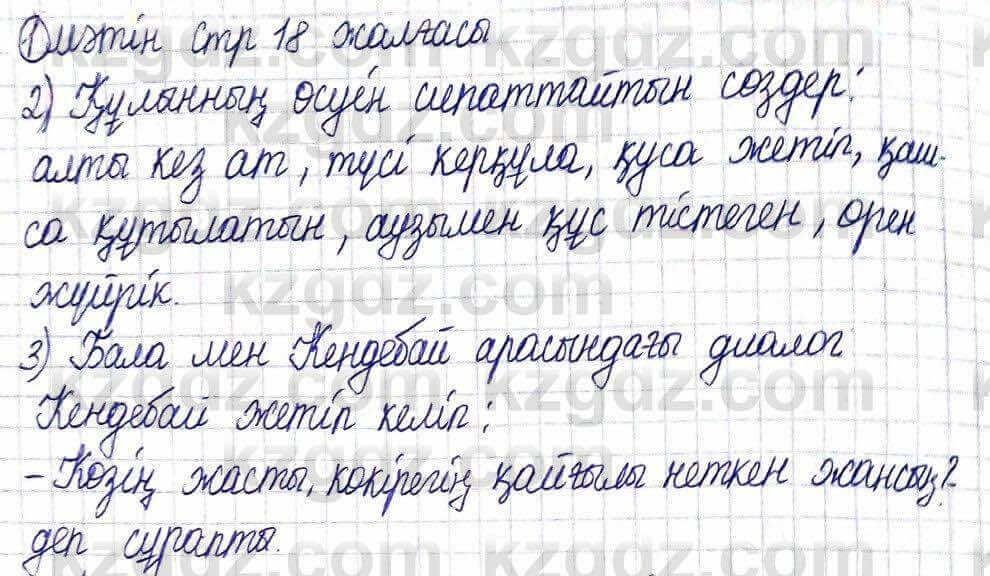 1) мәтін стр 18 жалғасы
2) Құлынның өсуін сипаттайтын сөздер:
алты кез ат, түсі керқұла, қуса жетіп, қаш-
са құтылатын, аузымен құс тістеген, өрен
жүйрік.
3) Бала мен Кендебай арасындағы диалог
Кендебай жетіп келіп:
- Көзің жасты, көкірегің қайғылы неткен жансың?-
деп сұрапты.
kzgdz.com